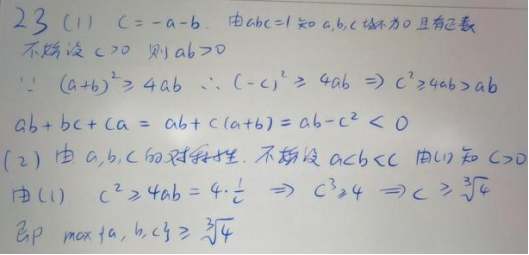 23 (1) c=-a-b. 由abc=1知a,b,c均不为0且有正数
不妨设 c>0 则ab>0
∵ (a+b)²≥4ab ∴ (-c)²≥4ab ⇒ c²≥4ab>ab
ab+bc+ca = ab+c(a+b) = ab-c² < 0
(2) 由a,b,c的对称性. 不妨设 a<b<c 由(1)知 c>0
由(1) c²≥4ab=4·1/c ⇒ c³≥4 ⇒ c≥∛4
即 max{a,b,c}≥∛4